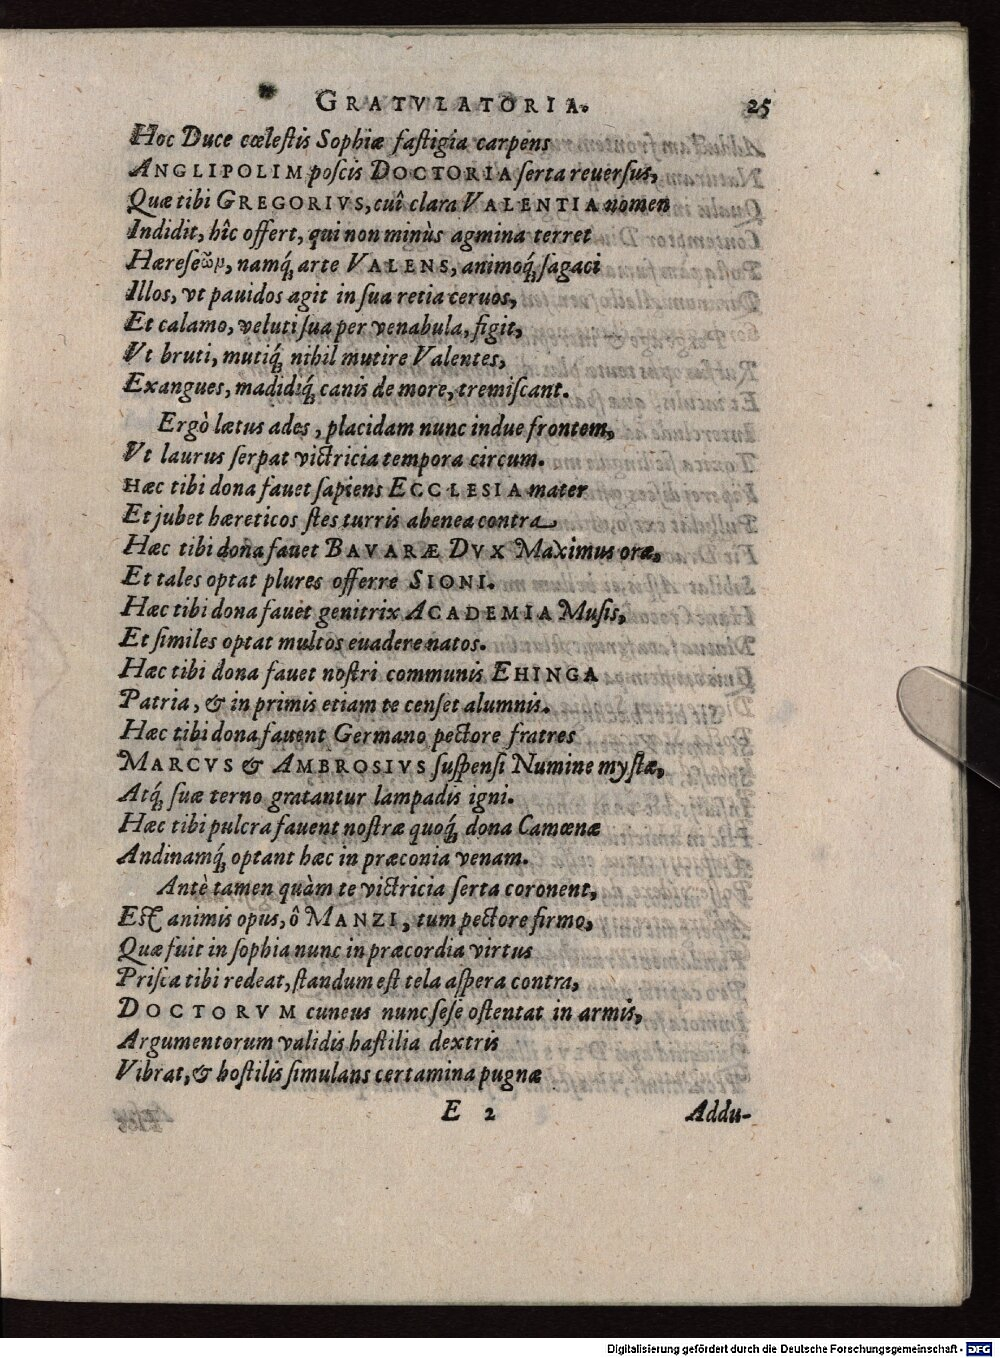 GRATVLATORIA. 25
Hoc Duce cœlestis Sophiæ fastigia carpens
ANGLIPOLIM poscis DOCTORIA serta reuersus,
Quæ tibi GREGORIVS, cuî clara VALENTIA nomen
Indidit, hîc offert, qui non minùs agmina terret
Hæreseῶμ, namq́; arte VALENS, animoq́; sagaci
Illos, vt pauidos agit in sua retia ceruos,
Et calamo, veluti sua per venabula, figit,
Vt bruti, mutiq́; nihil mutire Valentes,
Exangues, madidiq́; canis de more, tremiscant.
Ergò lætus ades, placidam nunc indue frontem,
Vt laurus serpat victricia tempora circum.
Hæc tibi dona fauet sapiens ECCLESIA mater
Et jubet hæreticos stes turris ahenea contra
Hæc tibi dona fauet BAVARÆ DVX Maximus oræ,
Et tales optat plures offerre SIONI.
Hæc tibi dona fauet genitrix ACADEMIA Musis,
Et similes optat multos euadere natos.
Hæc tibi dona fauet nostri communis EHINGA
Patria, & in primis etiam te censet alumnis.
Hæc tibi dona fauent Germano pectore fratres
MARCVS & AMBROSIVS suspensi Numine mystæ,
Atq́; suæ terno gratantur lampadis igni.
Hæc tibi pulcra fauent nostræ quoq́; dona Camœnæ
Andinamq́; optant hæc in præconia venam.
Antè tamen quàm te victricia serta coronent,
Est animis opus, ô MANZI, tum pectore firmo,
Quæ fuit in sophia nunc in præcordia virtus
Prisca tibi redeat, standum est tela aspera contra,
DOCTORVM cuneus nunc sese ostentat in armis,
Argumentorum validis hastilia dextris
Vibrat, & hostilis simulans certamina pugnæ
E 2 Addu-
Digitalisierung gefördert durch die Deutsche Forschungsgemeinschaft - DFG